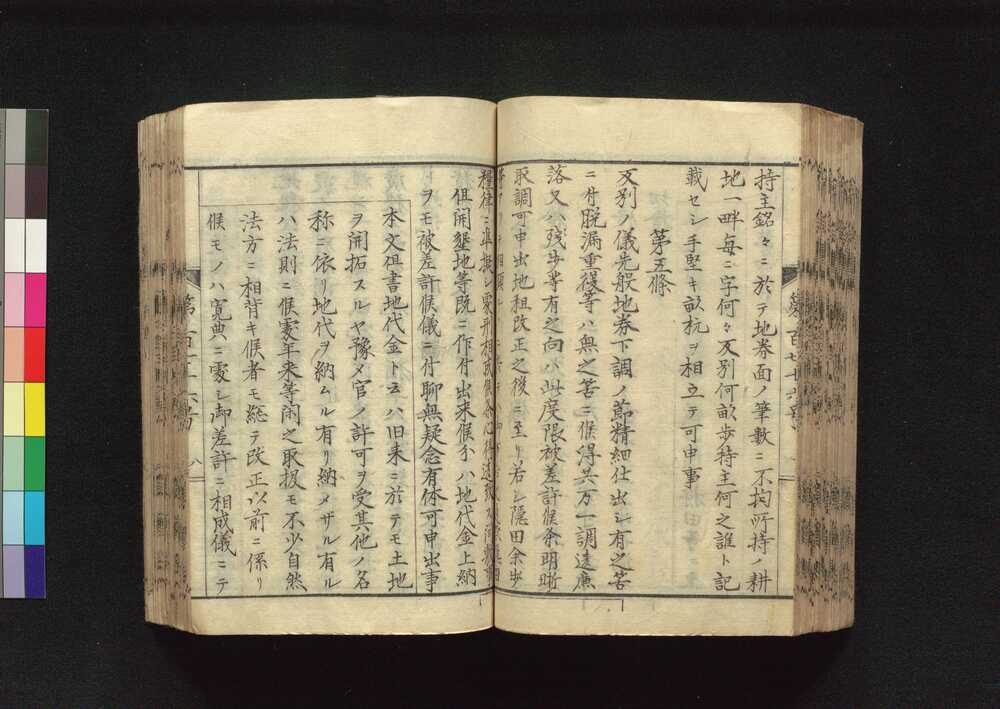 持主銘々ニ於テ地券面ノ筆数ニ不拘所持ノ耕
地一畔毎ニ字何々反別何畝歩持主何之誰ト記
載セシ手堅キ畝杭ヲ相立テ可申事
第五條
反別ノ儀先般地券下調ノ節精細仕出シ有之筈
ニ付脱漏重複等ハ無之筈ニ候得共万一調違廉
落又ハ残歩等有之向ハ此度限被差許候条明晰
取調可申出地租改正之後ニ至リ若シ隠田余歩
糧律ニ準拠シ
但開墾地等既ニ作付出来候分ハ地代金上納
ヲモ被差許候儀ニ付聊無疑念有体可申出事
本文但書地代金ト云ハ旧来ニ於テモ土地
ヲ開拓スルヤ豫メ官ノ許可ヲ受其他ノ名
称ニ依リ地代ヲ納ムル有リ納メサル有ル
ハ法則ニ候處年来等閑之取扱モ不少自然
法方ニ相背キ候者モ総テ改正以前ニ係リ
候モノハ寛典ニ處シ御差許ニ相成儀ニテ
第百七十六号
八